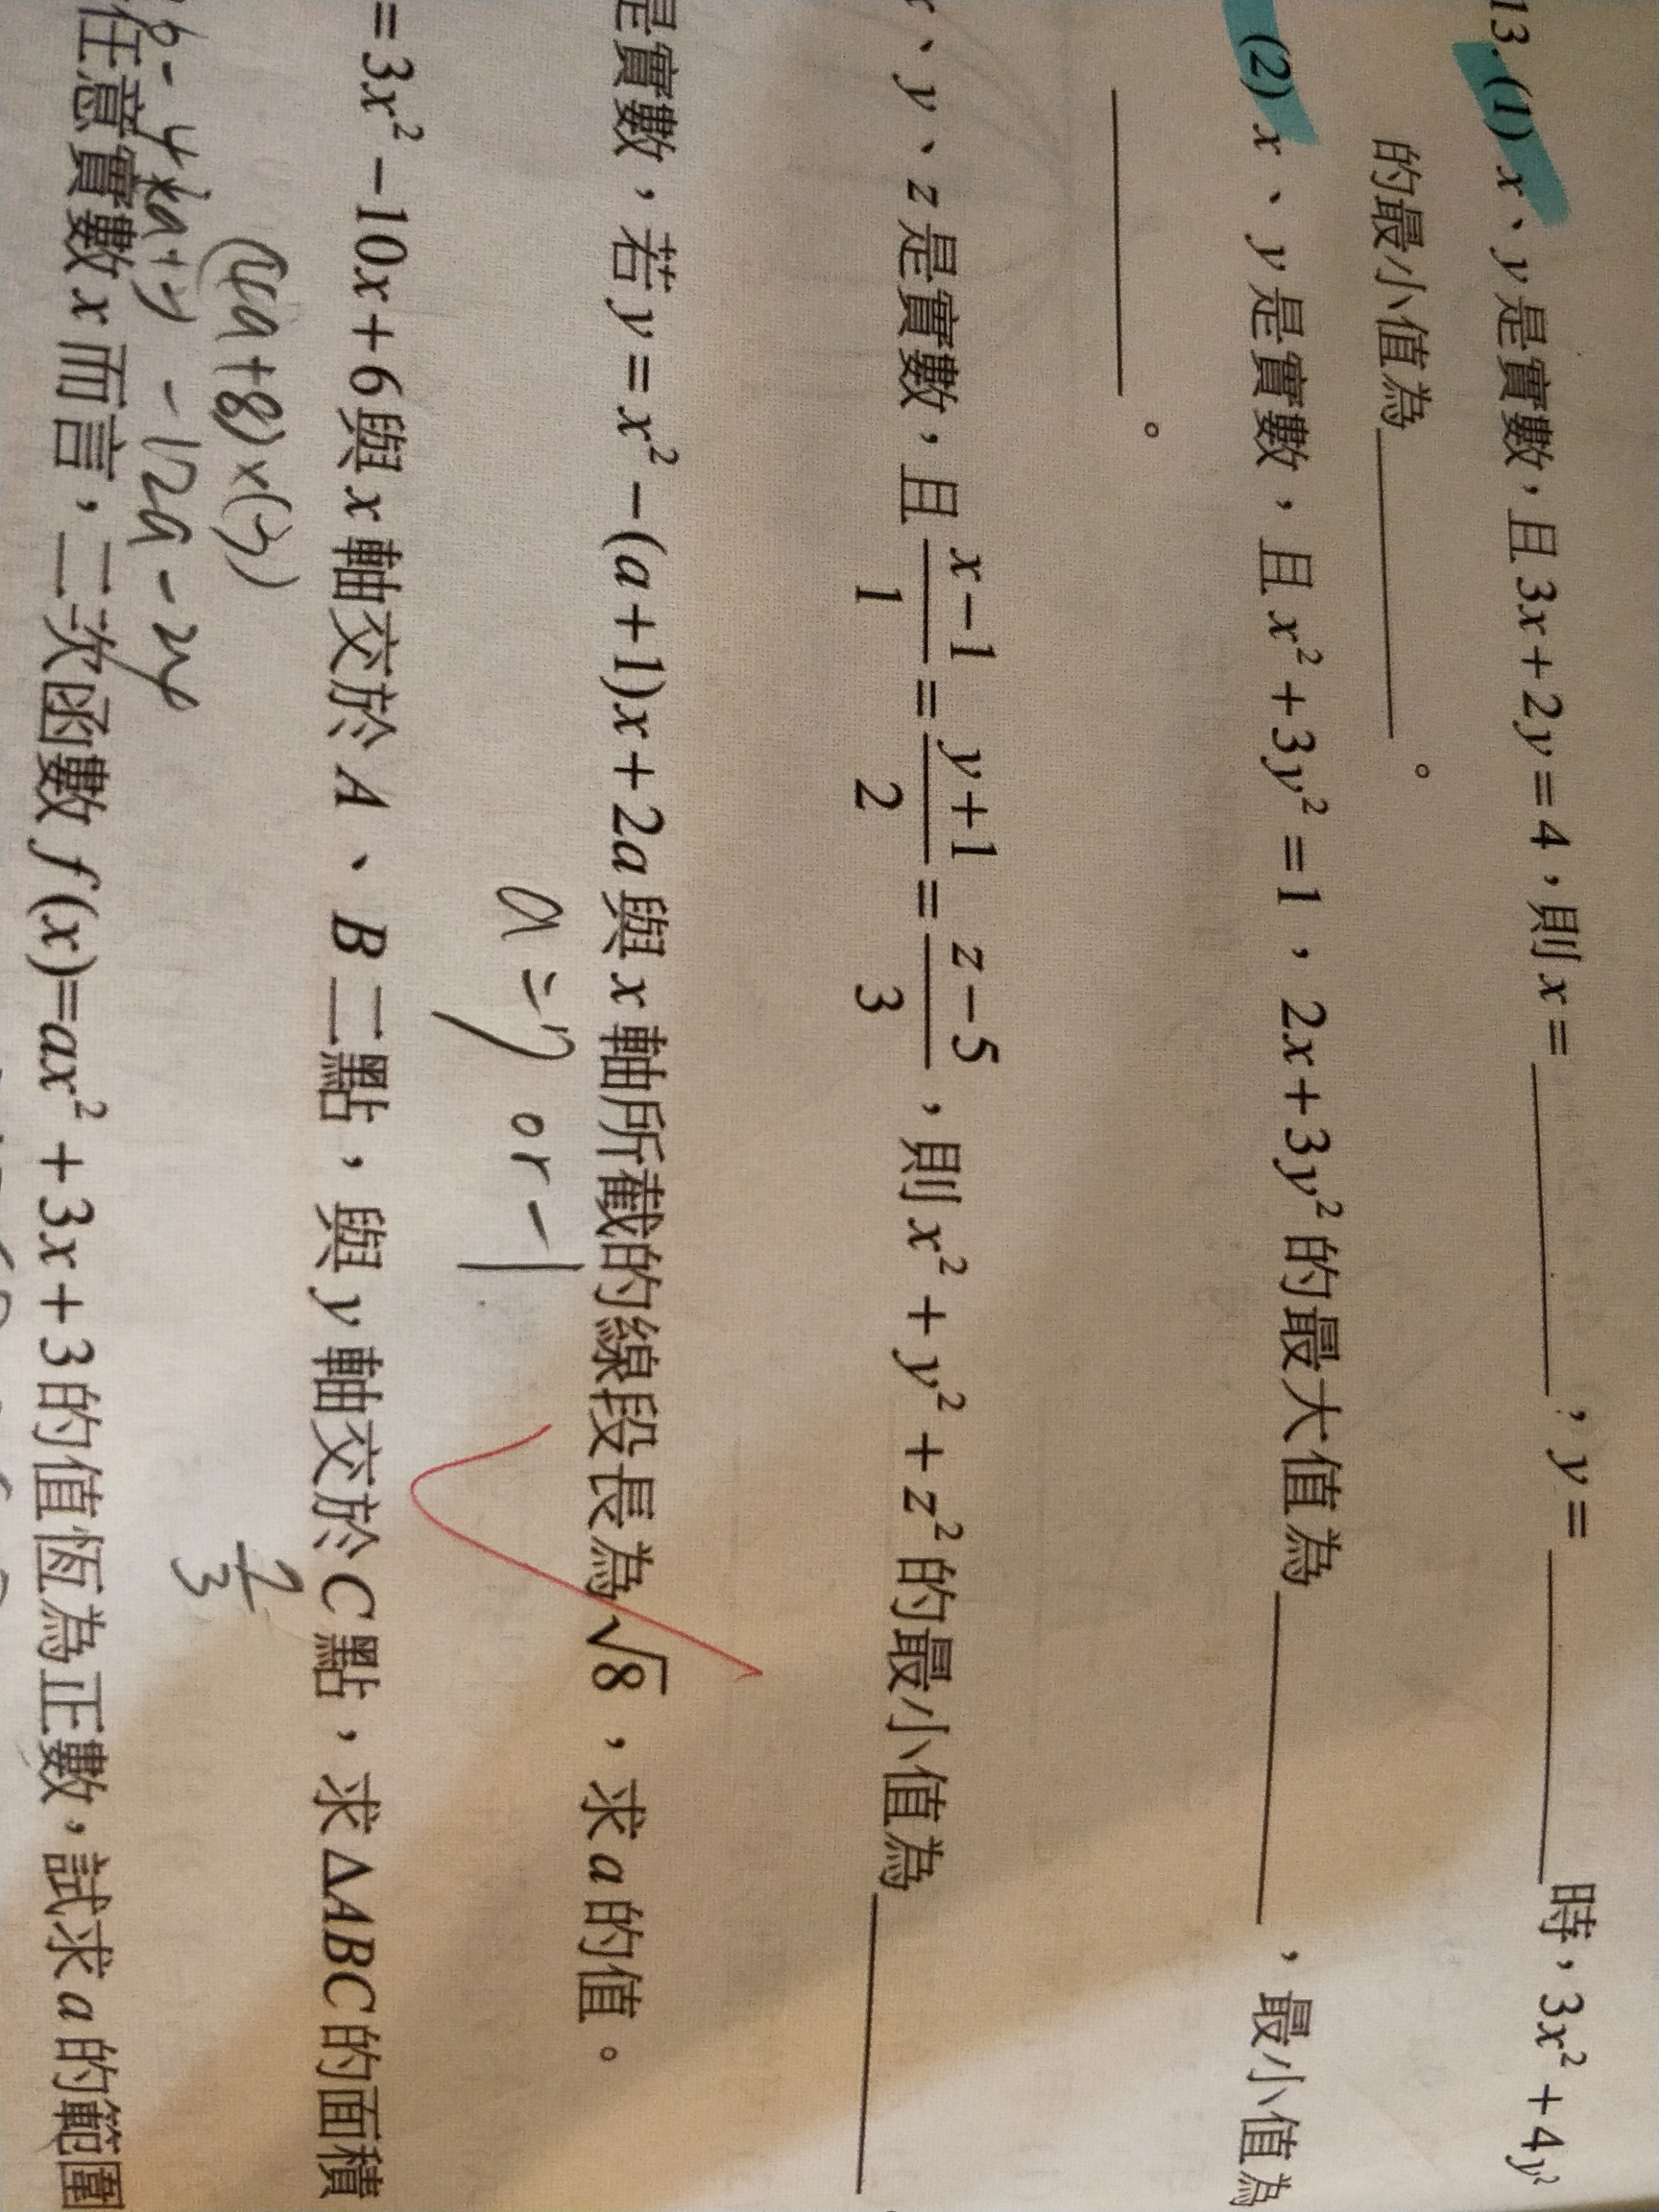 13.(1) x、y是實數，且3x+2y=4，則x=＿＿＿＿，y=＿＿＿＿時，3x²+4y²
的最小值為＿＿＿＿。
(2) x、y是實數，且x²+3y²=1，2x+3y²的最大值為＿＿＿＿，最小值為
＿＿＿＿。
、y、z是實數，且 (x-1)/1 = (y+1)/2 = (z-5)/3，則x²+y²+z²的最小值為＿＿＿＿
是實數，若y=x²-(a+1)x+2a與x軸所截的線段長為√8，求a的值。
a=7 or -1
=3x²-10x+6與x軸交於A、B二點，與y軸交於C點，求△ABC的面積
(4a+8)×(-3)
-12a-24
任意實數x而言，二次函數f(x)=ax²+3x+3的值恆為正數，試求a的範圍